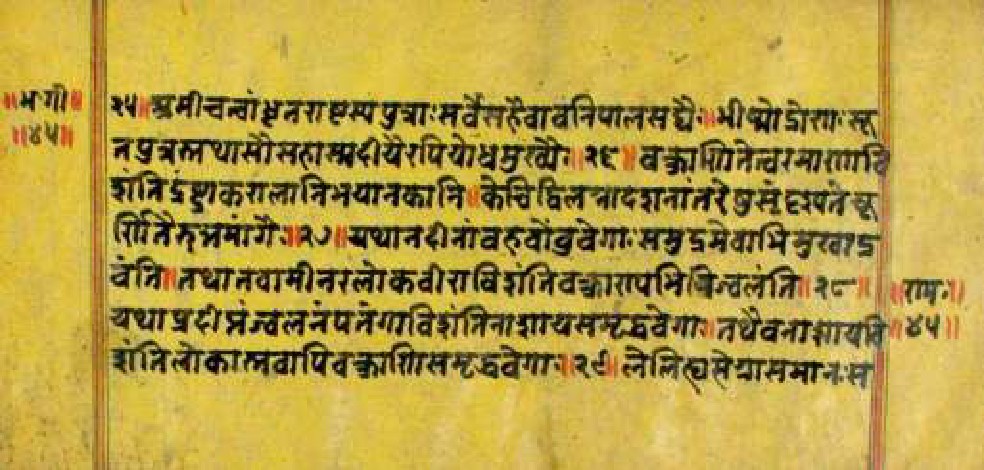 ॥भ॰गी॥
॥४५॥
२५॥अमीचत्वांधृतराष्ट्रस्यपुत्राःसर्वेसहैवावनिपालसंघैः॥भीष्मोद्रोणःसू
तपुत्रस्तथासौसहास्मदीयैरपियोधमुख्यैः॥२६॥वक्त्राणितेत्वरमाणावि
शंतिदंष्ट्राकरालानिभयानकानि॥केचिद्विलग्नादशनांतरेषुसंदृश्यंतेचू
र्णितैरुत्तमांगैः॥२७॥यथानदीनांबहवोंबुवेगाःसमुद्रमेवाभिमुखाद्र
वंति॥तथातवामीनरलोकवीराविशंतिवक्त्राण्यभिविज्वलंति॥२८॥
यथाप्रदीप्तंज्वलनंपतंगाविशंतिनाशायसमृद्धवेगाः॥तथैवनाशायवि
शंतिलोकास्तवापिवक्त्राणिसमृद्धवेगाः॥२९॥लेलिह्यसेग्रसमानःस
॥राम॰॥
४५॥